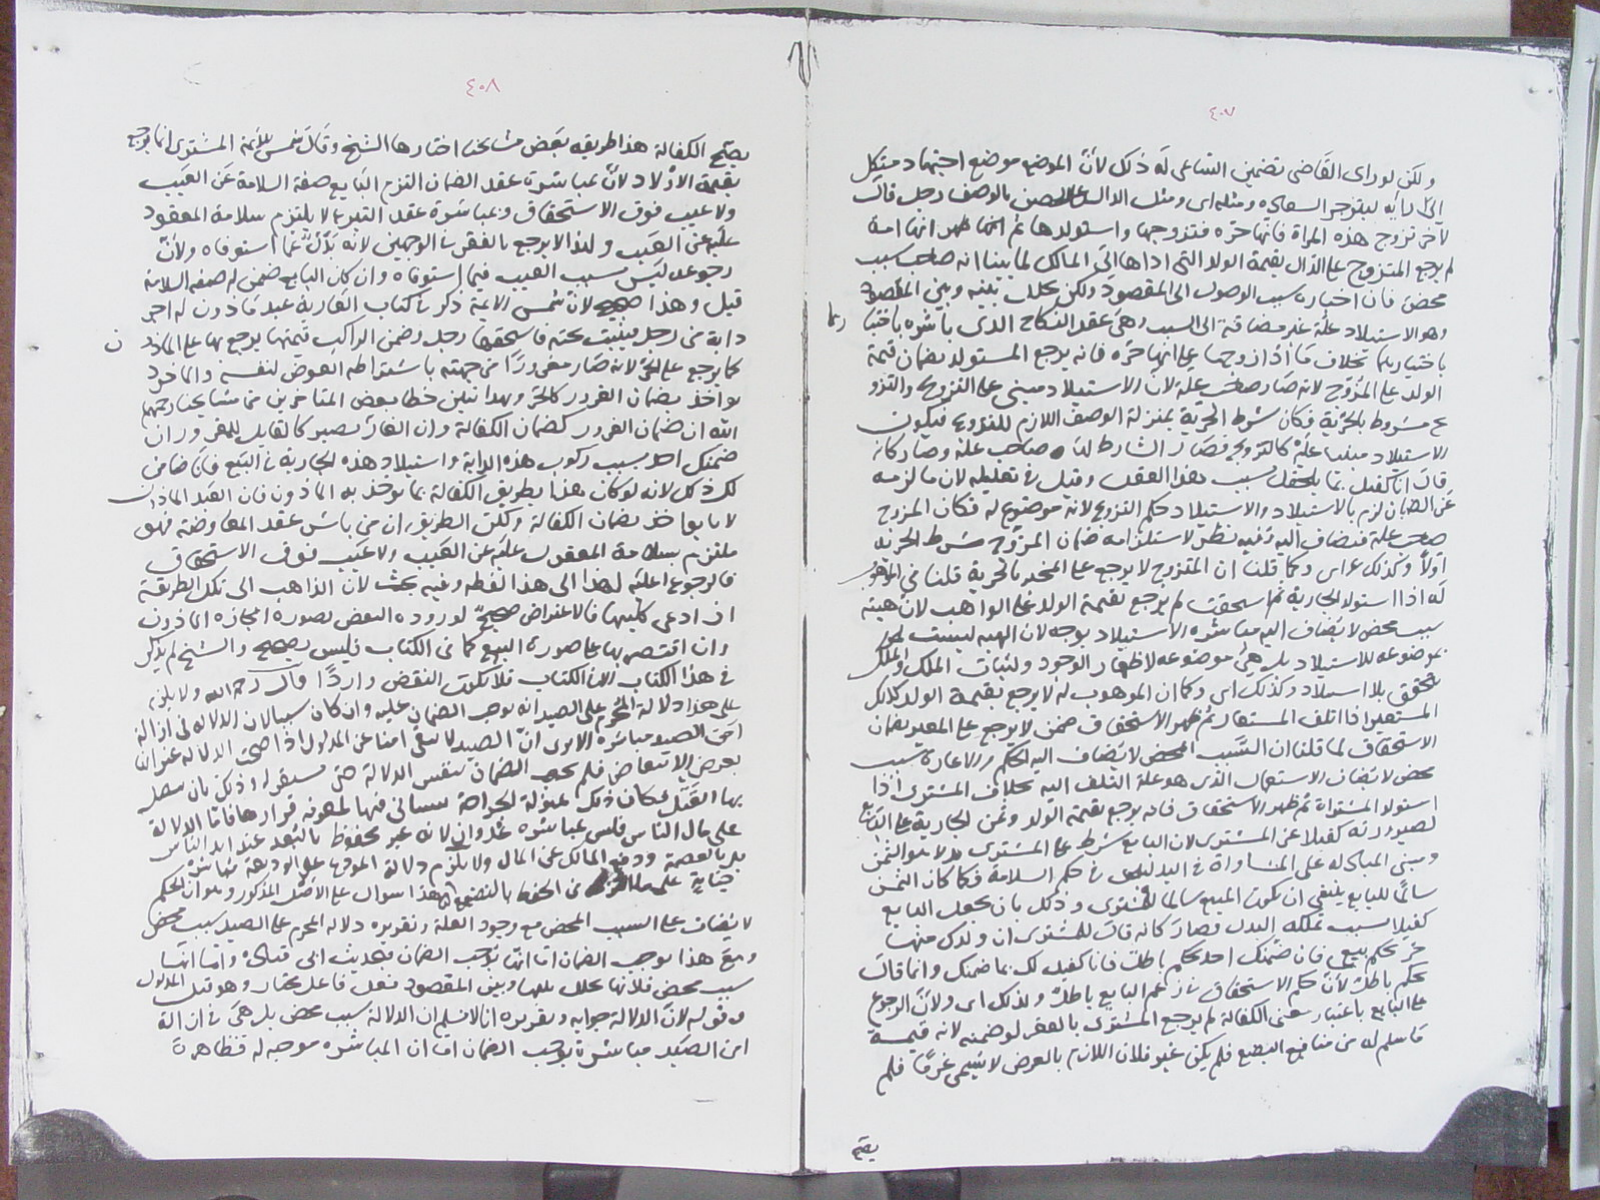 ٤٠٧
ولكن لو راى القاضى تضمين الساعى له ذلك لان الموضع موضع اجتهاد فيتكل
لآخر تزوج هذه المراة فانها حرة فتزوجها واستولدها ثم ظهر انها امة
لم يرجع المتزوج على الدال بقيمة الولد التى اداها الى المالك لما بينا انه صاحب سبب
محض فان اخباره سبب الوصول الى المقصود ولكن تخلل بينه وبين المقصود
وهو الاستيلاد علة غير مضافة الى السبب وهى عقد النكاح الذى باشره باختيا
بخلاف ما اذا زوجها على انها حرة فانه يرجع المستولد بضمان قيمة
الولد على المزوج لانه صار صاحب علة لان الاستيلاد مبنى على التزويج والتزو
يج مشروط بالحرية فكان شرط الحرية بمنزلة الوصف اللازم للتزوج فيكون
الاستيلاد مبنيا عليه كالتزويج فصار الشارط صاحب علة وصار كانه
قال انا كفيل بما يلحقك بسبب هذا العقد وقيل فى تعليله لان ما لزمه
من الضمان لزم بالاستيلاد والاستيلاد حكم التزوج لانه موضوع له فكان المزوج
صاحب علة فيضاف اليه وفيه نظر لاستلزامه ضمان المزوج شرط الحرية
اولا وكذلك اى وكما قلنا ان المتزوج لا يرجع على المخبر بالحرية قلنا فى الموهوب
له اذا استولد الجارية ثم استحقت لم يرجع بقيمة الولد على الواهب لان هبته
سبب محض لا يضاف اليه مباشرة الاستيلاد بوجه لان الهبة ليست
بموضوعة للاستيلاد بل هى موضوعة لاظهار الوجود ولاثبات الملك والملك
يتحقق بلا استيلاد وكذلك اى وكما ان الموهوب له لا يرجع بقيمة الولد كذلك
المستعير اذا اتلف المستعار ثم ظهر الاستحقاق ضمن لا يرجع على المعير بضمان
الاستحقاق لما قلنا ان السبب المحض لا يضاف اليه الحكم والاعارة سبب
محض لا يضاف الاستعمال الذى هو علة التلف اليه بخلاف المشترى اذا
استولد المشتراة ثم ظهر الاستحقاق فانه يرجع بقيمة الولد وثمن الجارية على البايع
لصيرورته كفيلا عن المشترى لان البايع شرط على المشترى
ومبنى المبادلة على المساواة فى البدلين فى حكم السلامة فكما كان الثمن
سالما للبايع ينبغى ان يكون المبيع سالما للمشترى وذلك بان يجعل البايع
كفيلا بسبب تملكه البدل فصار كانه قال للمشترى ان ولدك منها
حر بحكم بيعى فان ضمنك احد بحكم باطل فانا كفيل لك بما ضمنك وانما قال
بحكم باطل لان حكم الاستحقاق فى زعم البايع باطل ولذلك اى ولان الرجوع
على البايع باعتبار معنى الكفالة لم يرجع المشترى بالعقر لو ضمنه لانه قيمة
ما سلم له من منافع البضع فلم يكن غير فلان اللازم بالعوض لا يسمى غرما فلم
يصح
٤٠٨
يصح الكفالة هذا طريقة بعض مشايخنا اختارها الشيخ وقال شمس الائمة المشترى انما يرجع
بقيمة الاولاد لان بمباشرة عقد الضمان التزم البايع صفة السلامة عن العيب
ولا عيب فوق الاستحقاق وبمباشرة عقد التبرع لا يلتزم سلامة المعقود
عليه عن العيب ولهذا لا يرجع بالعقر فى الوجهين لانه بدل عما استوفاه ولان
رجوعه ليس بسبب العيب فيما استوفاه وان كان البايع ضمن له صفة السلامة
قيل وهذا صحيح لان شمس الائمة ذكر فى كتاب العارية عبد ماذون له اجر
دابة من رجل فاستحقها رجل وضمن الراكب قيمتها يرجع بها على الماذو
ن
كما يرجع على الحر لانه صار مغرورا من جهته باشتراطه العوض لنفسه والماذون
يواخذ بضمان الغرور كالحر وبهذا تبين خطا بعض المتاخرين من مشايخنا رحمهم
الله ان ضمان الغرور كضمان الكفالة وان الغار يصير كالقايل للمغرور ان
ضمنك احد بسبب ركوب هذه الدابة واستيلاد هذه الجارية فى البيع فانا ضامن
لك ذلك لانه لو كان هذا بطريق الكفالة بما يوخذ به الماذون فان العبد الماذون
لا يواخذ بضمان الكفالة ولكن الطريق ان من باشر عقد المعاوضة فهو
ملتزم بسلامة المعقود عليه عن العيب ولا عيب فوق الاستحقاق
فالرجوع عليه لهذا الى هذا لفظه وفيه بحث لان الذاهب الى تلك الطريقة
اذ ادعى كليتها فالاعتراض صحيح لورود النقض بصورة اجازه الماذون
وان اقتصر بها على صورة البيع كما فى الكتاب فليس بصحيح والشيخ لم يذكر
فى هذا الكتاب فلا يكون النقض واردا قال رحمه الله ولا يلزم
على هذا دلالة المحرم على الصيد انه يوجب الضمان عليه وان كان سببا لان الدلالة فى ازالة
امن الصيد مباشرة الا يرى ان الصيد لا يبقى امنا عن المدلول اذا صحت الدلالة غير انها
بعرض الانتقاض فلم يجب الضمان بنفس الدلالة حتى يستقر وذلك بان يتصل
بها القتل فكان ذلك بمنزلة الجراحة يستانى فيها لمعرفة قرارها فاما الدلالة
على مال الناس فليس بمباشرة عدوان لانه غير محفوظ بالبعد عند ايد الناس
بل بالعصمة ودفع المالك عن المال ولا يلزم دلالة المودع على الوديعة مباشرة
جناية على ما التزم من الحفظ بالتضييع هذا سوال على الاصل المذكور وهو ان الحكم
لا يضاف على السبب المحض مع وجود العلة وتقريره دلالة المحرم على الصيد سبب محض
ومع هذا يوجب الضمان اما انها توجب الضمان فبحديث ابى قتادة واما انها
سبب محض فلانها تخلل بينها وبين المقصود فعل فاعل مختار وهو قتل المدلول
وقوله لان الدلالة جوابه وتقريره انا لا نسلم ان الدلالة سبب محض بل هى فى ازالة
امن الصيد مباشرة يوجب الضمان اما ان المباشرة موجبة له فظاهرة